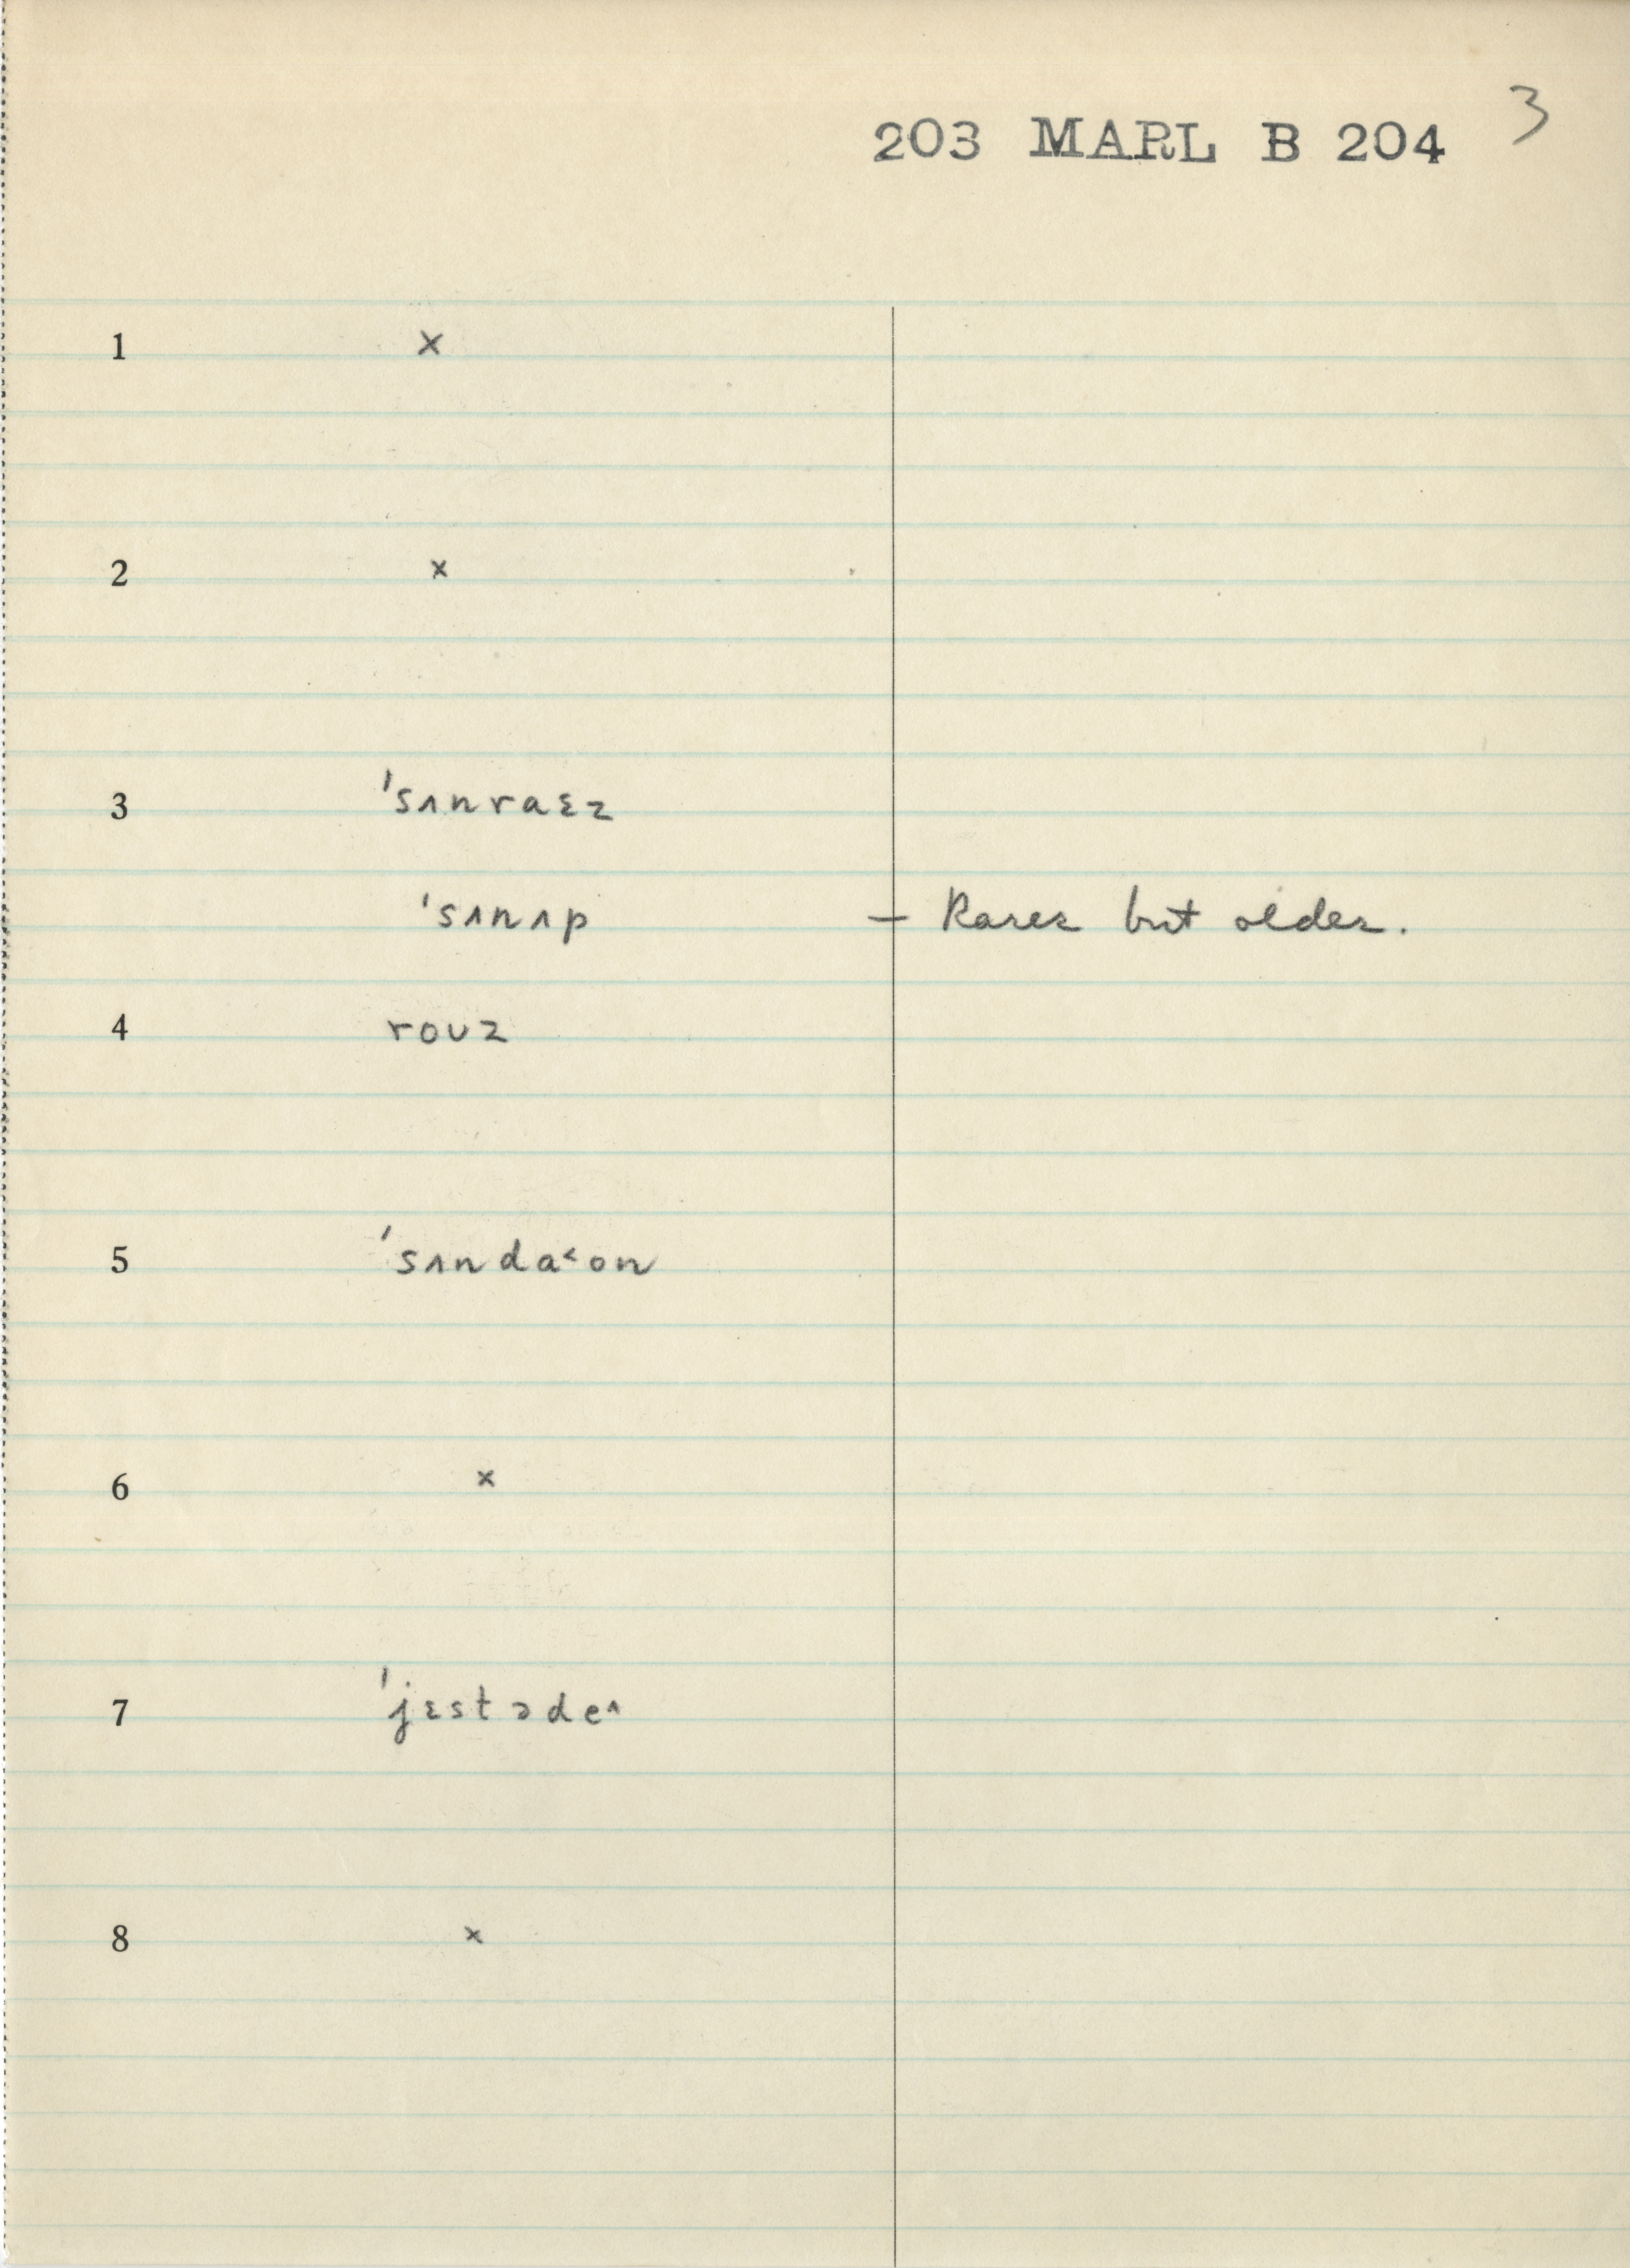 203 MARL B 204 3
1 ×
2 ×
3 'sʌnraɛz
'sʌnʌp — Rarer but older.
4 roʊz
5 'sʌnda˂on
6 ×
7 'jɛstədeˆ
8 ×